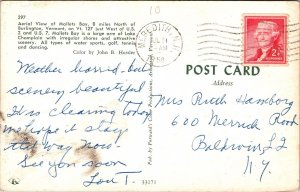 297
Aerial View of Mallets Bay, 8 miles North of
Burlington, Vermont, on Vt. 127 just West of U.S.
2 and U.S. 7. Mallets Bay is a large bay of Lake
Champlain with irregular shores and attractive
scenery. All types of water sports, golf, tennis
and dancing.
Color by John B. Harder
Weather horrid, but
scenery beautiful
It is clearing today
we hope it stays
that way now-
See you soon
Lou T.
10
JUL 11
AM
1958
POST CARD
Address
Mrs Ruth Hamborg
600 Merrick Road
Baldwin, L I
N.Y.
2¢
K
33271